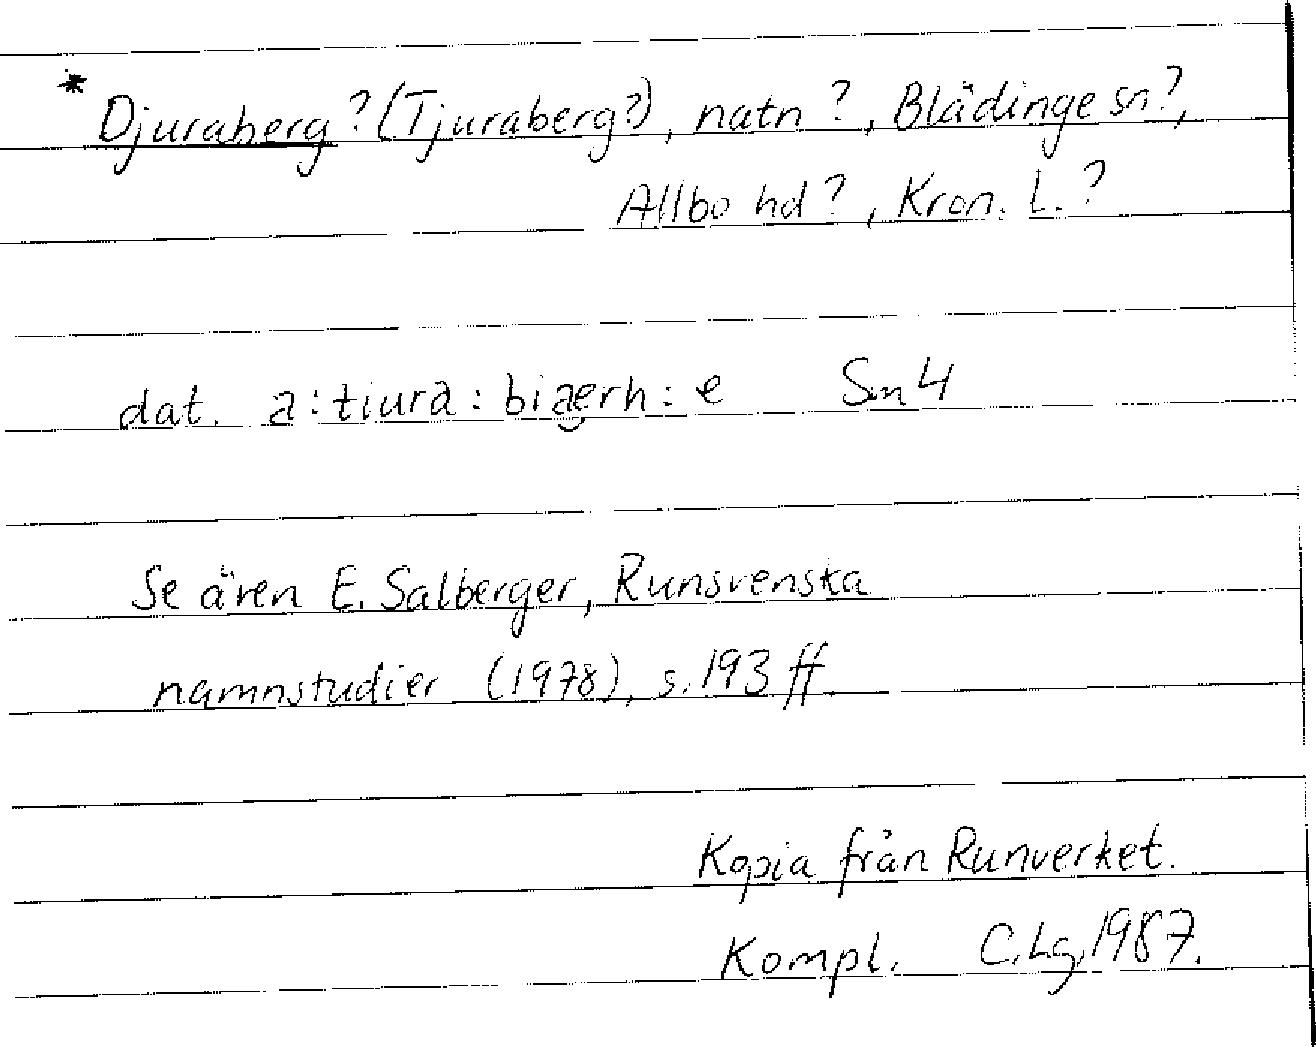 * Djuraberg? (Tjuraberg?), natn?, Blädinge sn?,
Allbo hd?, Kron. L.?
dat. a:tiura:biaerh:e Sm 4
Se även E. Salberger, Runsvenska
namnstudier (1978), s. 193 ff
Kopia från Runverket.
Kompl. C.Lg. 1987.